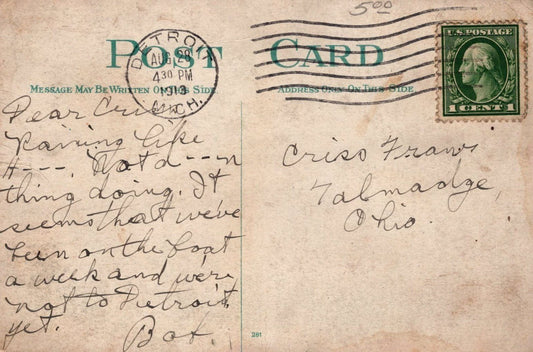 5 00
POST CARD
DETROIT
AUG 29
4 30 PM
1913
MICH.
U.S. POSTAGE
1 CENT 1
MESSAGE MAY BE WRITTEN ON THIS SIDE
ADDRESS ONLY ON THIS SIDE
Dear Criss
Raining like
H---. Not a d---n
thing doing. It
seems that we've
been on the boat
a week and we're
not to Detroit
yet.
Criss Frans
Talmadge,
Ohio.
261